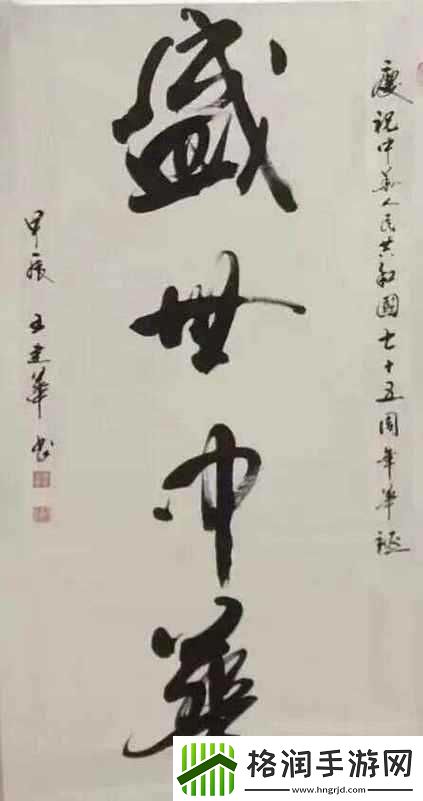 慶祝中華人民共和國七十五周年華誕
盛世中華
甲辰 王建華書
格润手游网
www.hngrjd.com